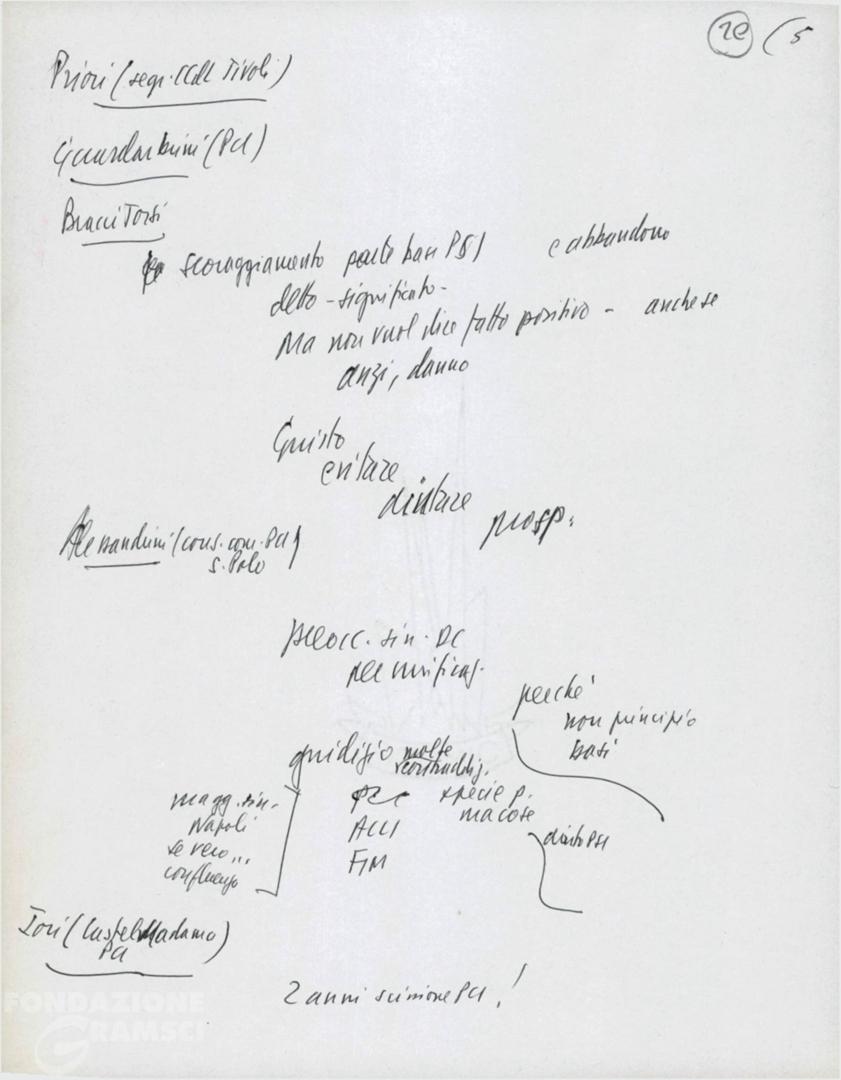 20 (5
Priori (segr. CCdL Tivoli)
(PCI)
Bracci Torsi
scoraggiamento parte basi PSI e abbandono
detto - significato -
Ma non vuol dire fatto positivo - anche se
anzi, danno
Giusto
evitare
aiutare
prosp.
Alessandrini (cons. com. PCI)
S. Polo
preocc. sin. DC
per unificaz.
perché
non principio
basi
giudizio molte
contraddiz.
magg. sin.
Napoli
se vero...
confluenza
specie p.
ma cose
ACLI
FIM
PSI
Iori (Castel Madama)
PCI
2 anni scissione PCI!
FONDAZIONE
GRAMSCI